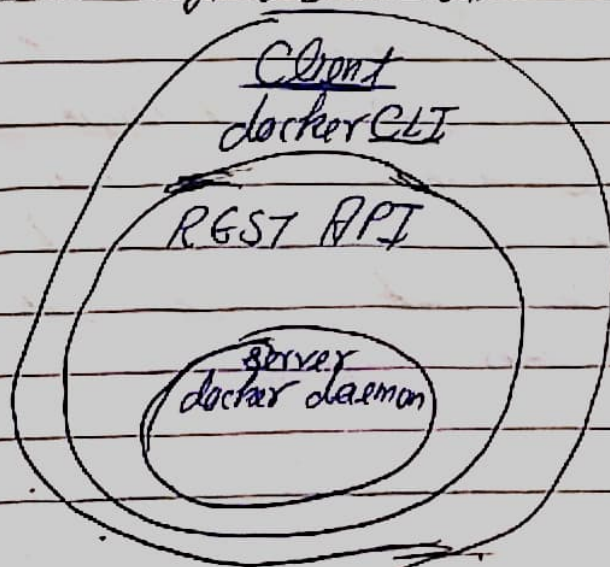 Client
docker CLI
REST API
server
docker daemon